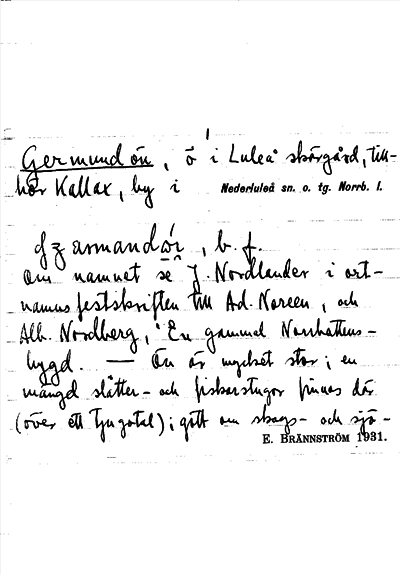 Germundön, ö i Luleå skärgård, till-
hör Kallax, by i Nederluleå sn. o. tg. Norrb. l.
, b. f.
Om namnet se J. Nordlander i ort-
namnsfestskriften till Ad. Noreen, och
Alb. Nordberg, En gammal Norrbottens-
bygd. — Ön är mycket stor; en
mängd slåtter- och fiskarstugor finnas där
(över ett tjugotal); gott om skogs- och sjö-
E. BRÄNNSTRÖM 1931.